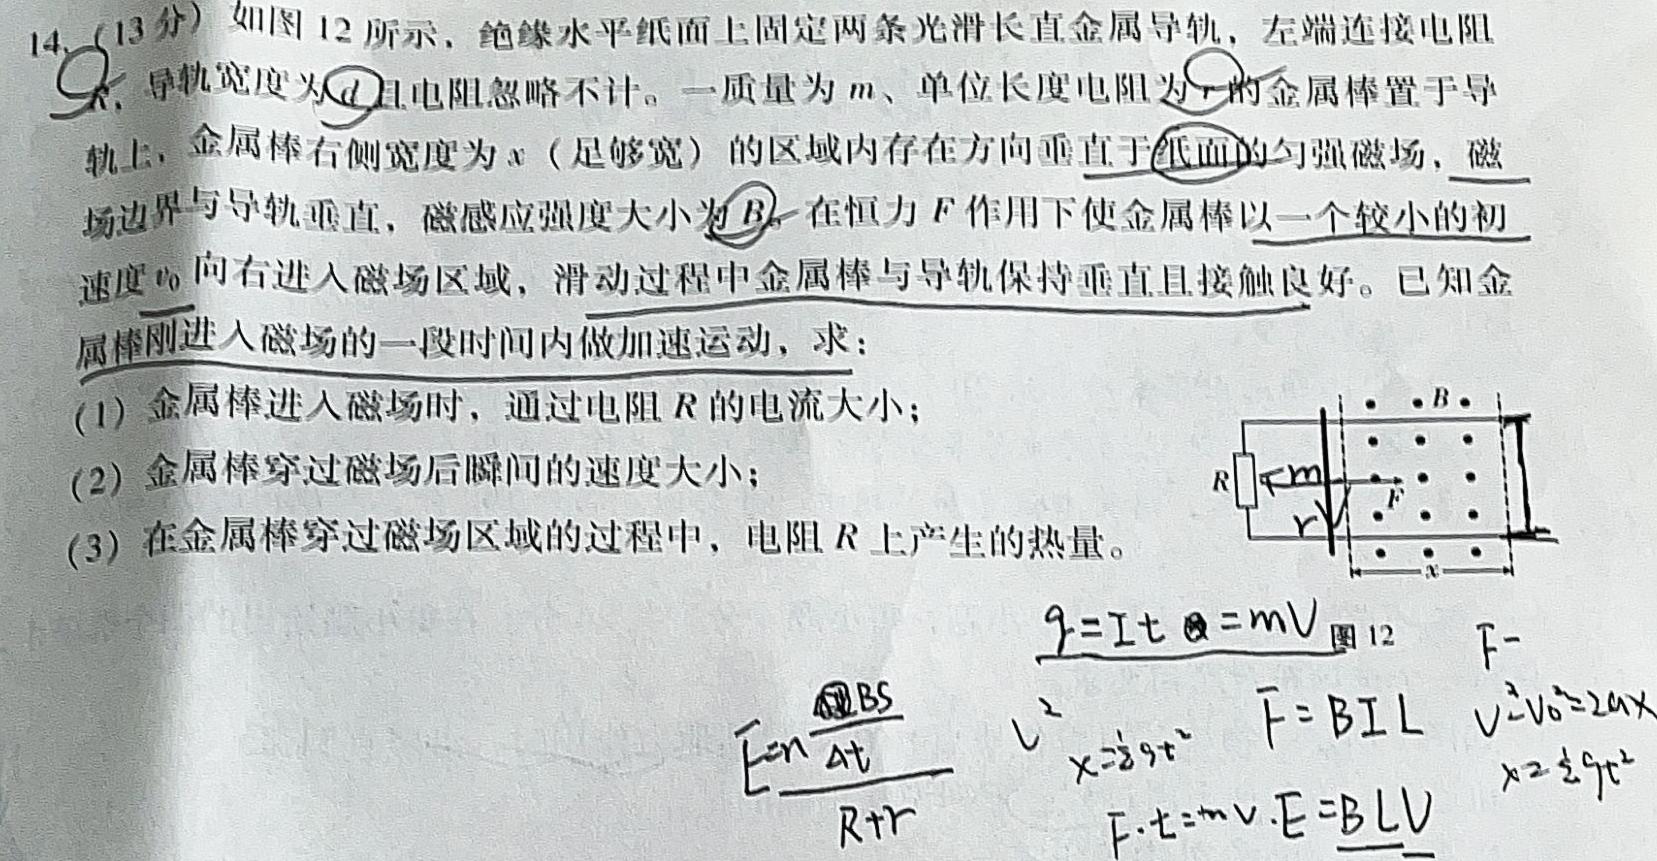 14. (13分) 如图 12 所示，绝缘水平纸面上固定两条光滑长直金属导轨，左端连接电阻
R，导轨宽度为 d 且电阻忽略不计。一质量为 m、单位长度电阻为 r 的金属棒置于导
轨上，金属棒右侧宽度为 x（足够宽）的区域内存在方向垂直于纸面的匀强磁场，磁
场边界与导轨垂直，磁感应强度大小为 B。在恒力 F 作用下使金属棒以一个较小的初
速度 v₀ 向右进入磁场区域，滑动过程中金属棒与导轨保持垂直且接触良好。已知金
属棒刚进入磁场的一段时间内做加速运动，求：
(1) 金属棒进入磁场时，通过电阻 R 的电流大小；
(2) 金属棒穿过磁场后瞬间的速度大小；
(3) 在金属棒穿过磁场区域的过程中，电阻 R 上产生的热量。
B
R m F
r
x
图 12
q=It =mV
F-
E=n BS/Δt
R+r
v²
x=½gt²
F=BIL
v²-v₀²=2ax
x=½gt²
F·t=mv.E=BLV